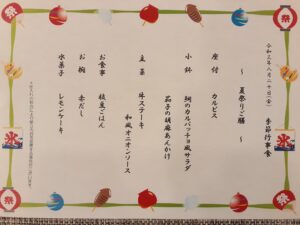 令和五年八月二十日(金) 季節行事食
~ 夏祭りご膳 ~
座付 カルピス
小鉢 鯛のカルパッチョ風サラダ
茄子の胡麻あんかけ
主菜 牛ステーキ
和風オニオンソース
お食事 枝豆ごはん
お椀 赤だし
水菓子 レモンケーキ
祭
祭
祭
祭
氷
氷